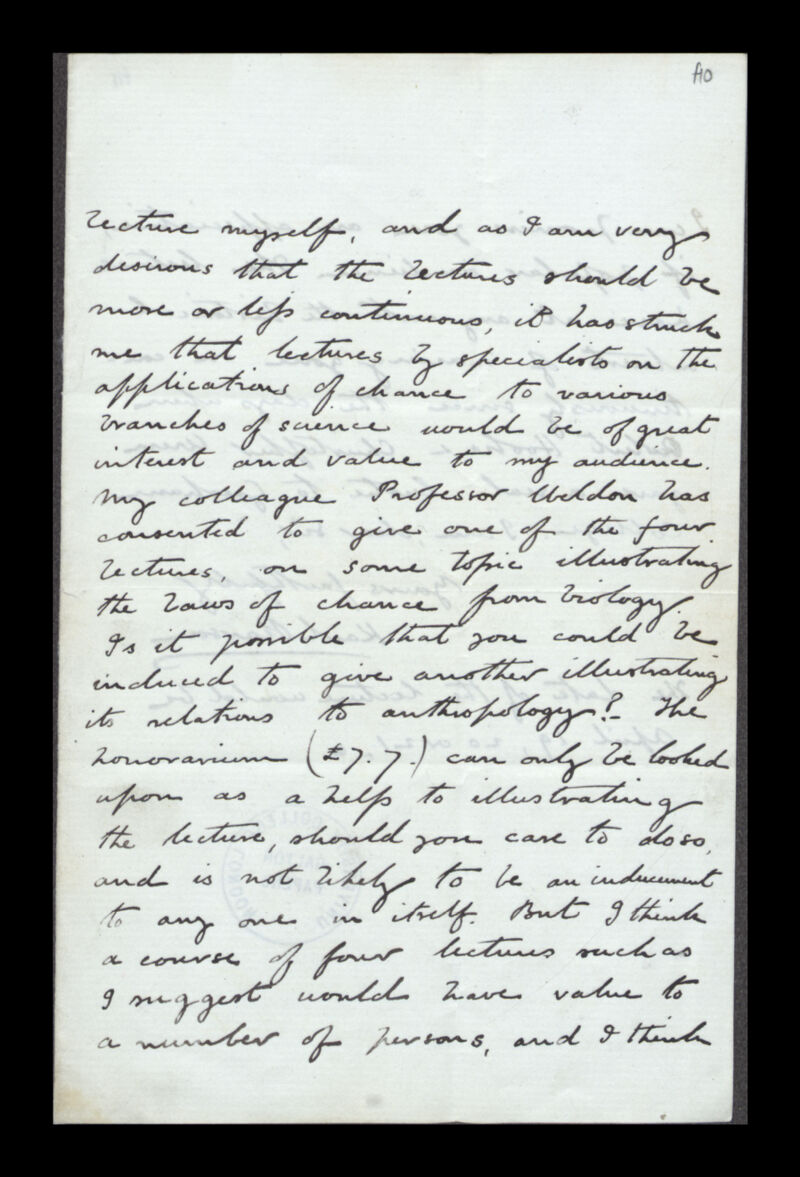 A0
lecture myself, and as I am very
desirous that the lectures should be
more or less continuous, it has struck
me that lectures by specialists on the
applications of chance to various
branches of science would be of great
interest and value to my audience.
My colleague Professor Weldon has
consented to give one of the four
lectures, on some topic illustrating
the laws of chance from biology.
Is it possible that you could be
induced to give another illustrating
its relations to anthropology? The
honorarium (£7.7.) can only be looked
upon as a help to illustrating
the lecture, should you care to do so,
and is not likely to be an inducement
to any one in itself. But I think
a course of four lectures such as
I suggest would have value to
a number of persons, and I think